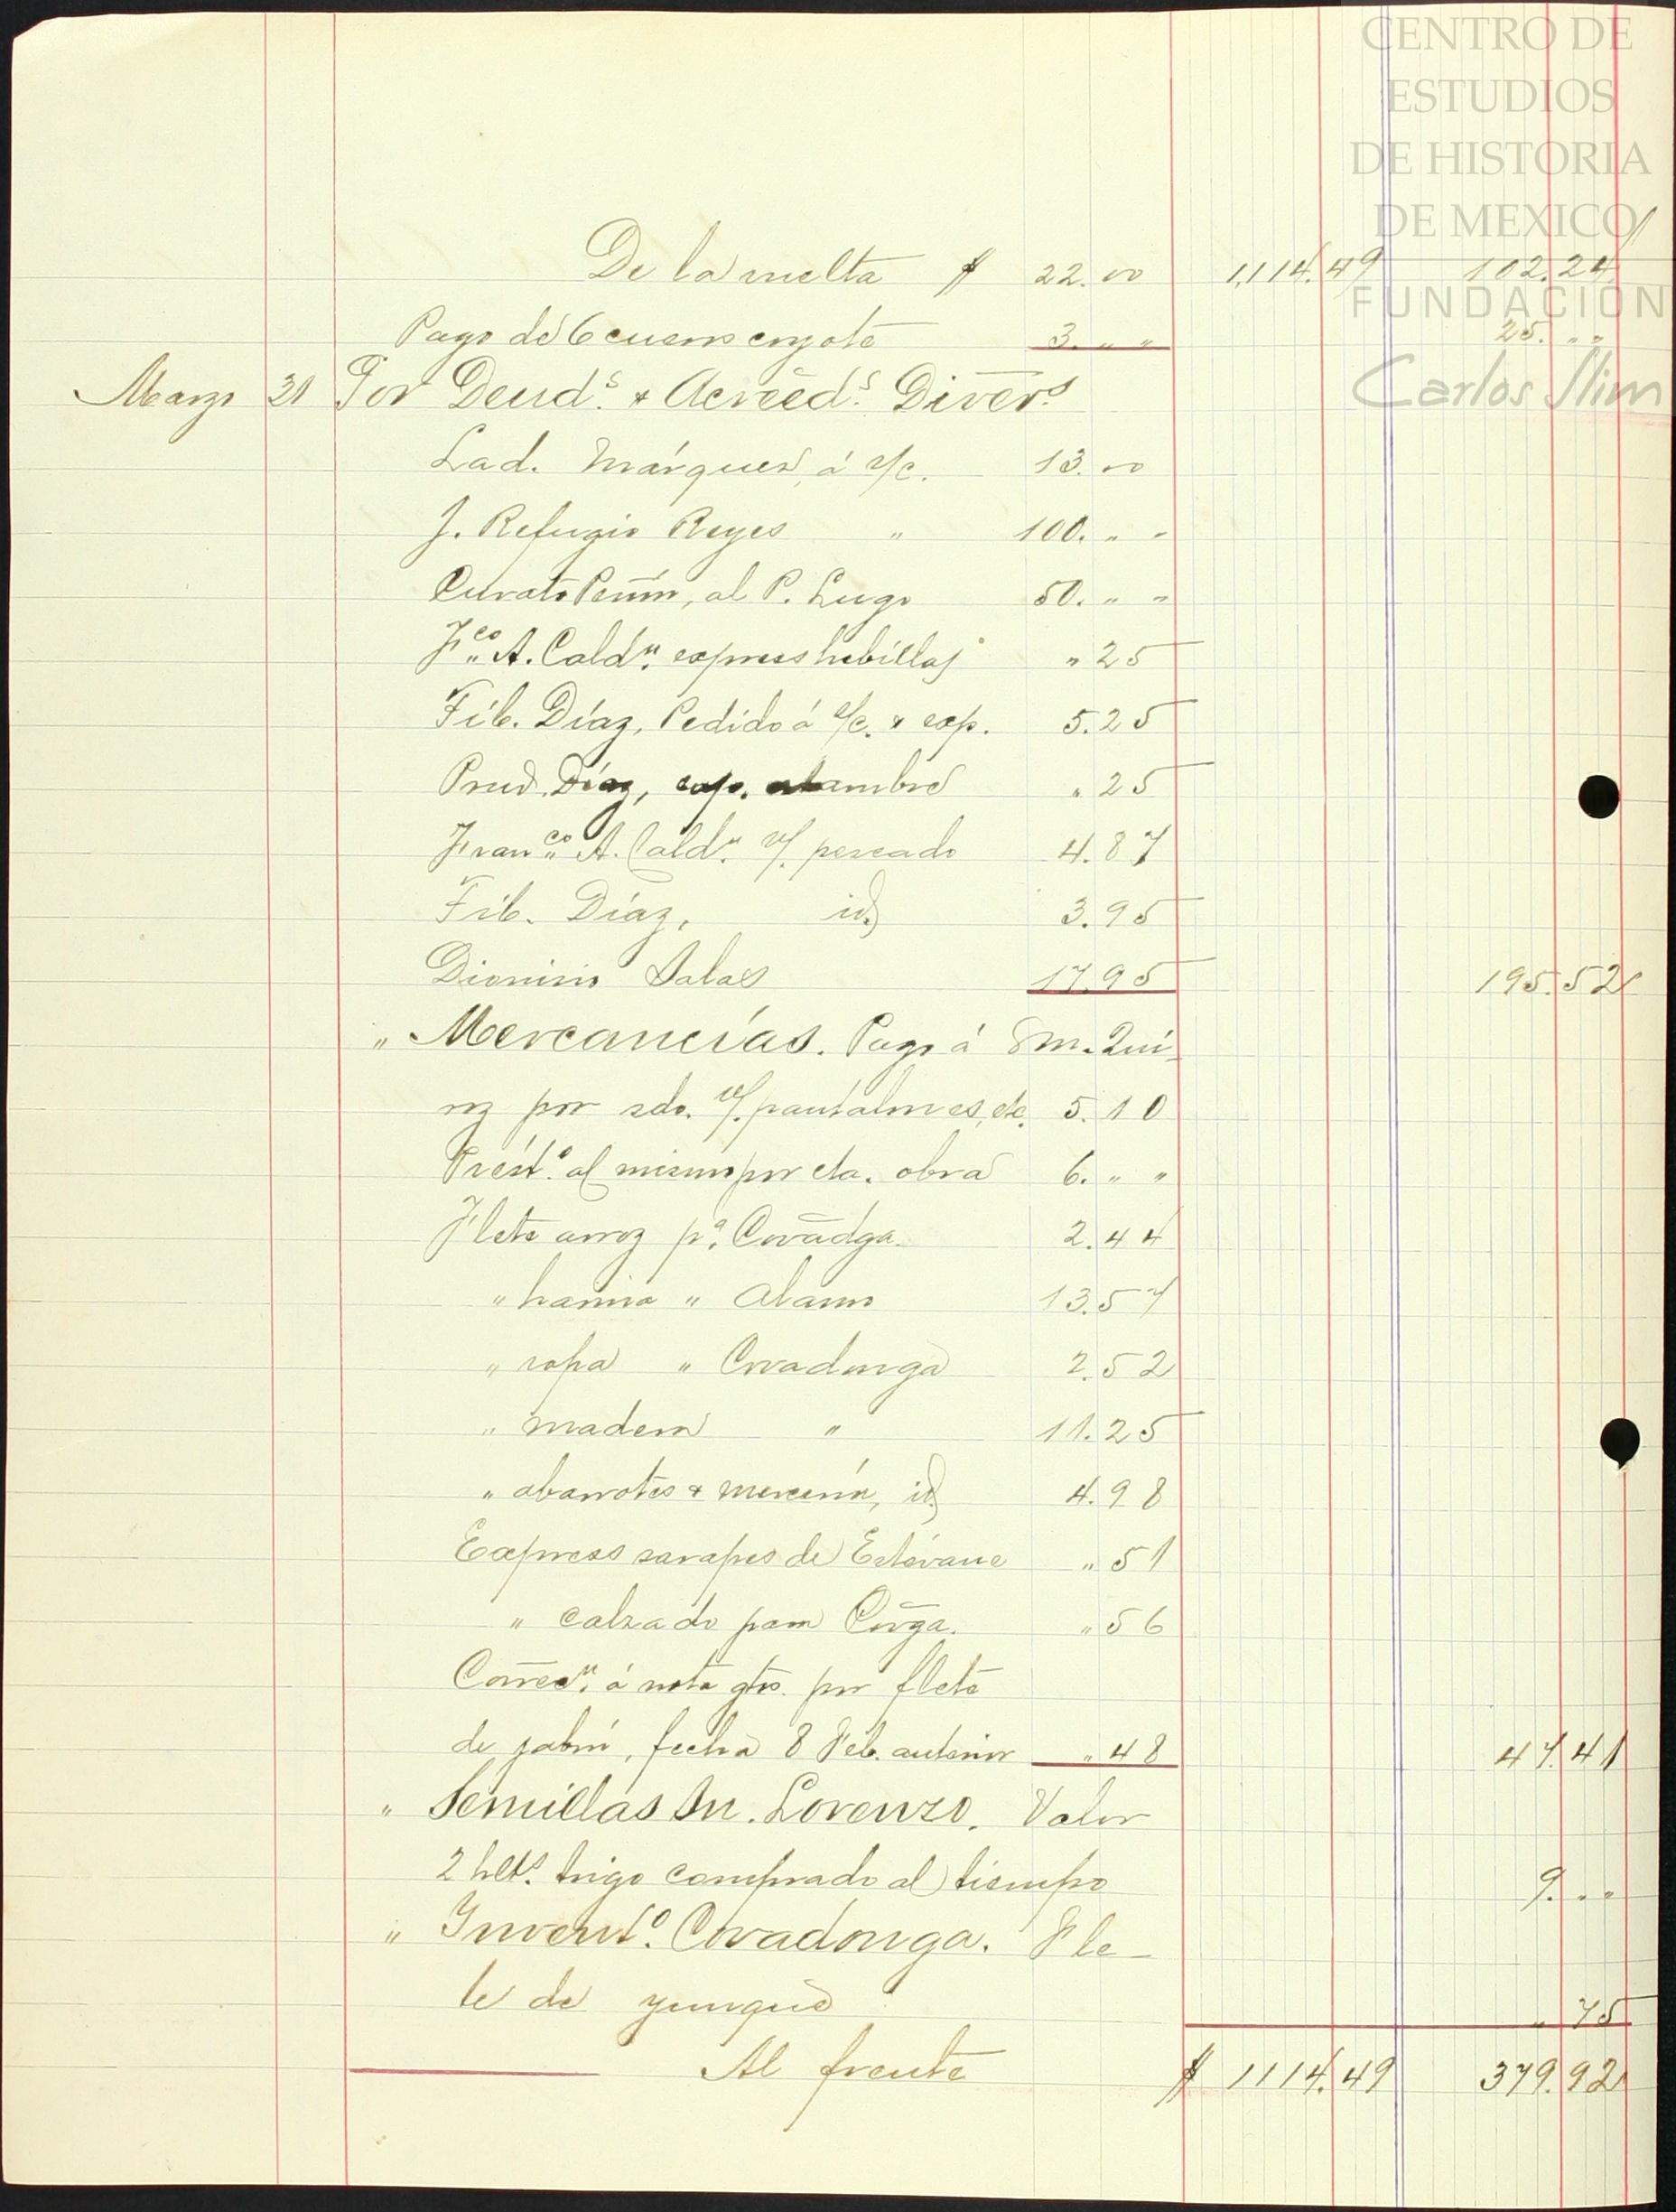 CENTRO DE
ESTUDIOS
DE HISTORIA
DE MEXICO
FUNDACIÓN
Carlos Slim
De la vuelta $ 22.00 1,114.49 102.24
Pago de 6 cueros coyote 3. " " 25. " "
Marzo 31 Por Deuds. & Acreeds. Divers.
Lad. Márquez, á v/c. 13.00
J. Refugio Reyes " 100. " "
Curato Peñón, al P. Lugo 50. " "
Fco. A. Caldn. express hebillas " 25
Fib. Díaz, Pedido á v/c. & exp. 5.25
Prud. Díaz, exp. alambre " 25
Franco. A. Caldn. v/. pescado 4.87
Fib. Díaz, id. 3.95
Dionisio Salas 17.95 195.52
" Mercancías. Pago á Em. Qui-
roz por sdo. v/. pantalones, etc. 5.10
Prést.o al mismo por cta. obra 6. " "
Flete arroz pa. Covadga. 2.44
" harina " Alamo 13.57
" ropa " Covadonga 2.52
" madera " 11.25
" abarrotes & mercería, id. 4.98
Express sarapes de Estévane " 51
" calzado para Covga. " 56
Correcn. á nota gtos. por flete
de jabón, fecha 8 Feb. anterior " 48 47.41
" Semillas Sn. Lorenzo. Valor
2 hlts. trigo comprado al tiempo 9. " "
" Invent.o Covadonga. Fle-
te de yunque " 75
Al frente $ 1114.49 379.92